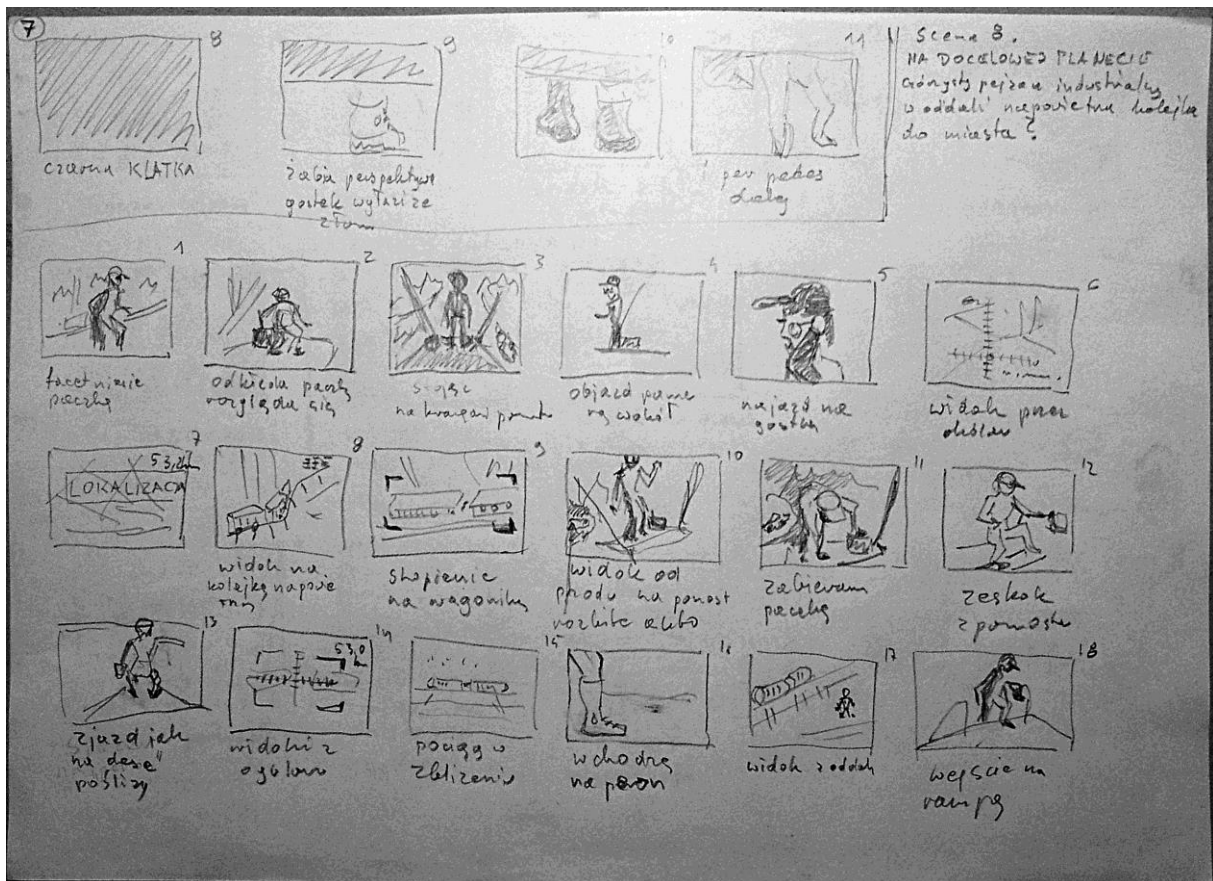 7
8
9
10
11
czarna KLATKA
żabia perspektywa
gostek wyłazi ze
złomu
i per pedes
dalej
Scena 8.
NA DOCELOWEJ PLANECIE
Górzysty pejzaż industrialny
w oddali napowietrzna kolejka
do miasta?
1
2
3
4
5
6
facet niesie
paczkę
odkłada paczkę
rozgląda się
stojąc
na krawędzi pomostu
objazd kame
rą wokół
najazd na
gostka
widok przez
7
8
9
10
11
12
53,2km
LOKALIZACJA
widok na
kolejkę napowie
trzną
skupienie
na wagoniku
widok od
przodu na pomost
rozbite
zabieram
paczkę
zeskok
z pomostu
13
14
15
16
17
18
53,0
km
zjazd jak
na desce
poślizg
widoki z
pociąg w
zbliżeniu
wchodzą
na peron
widok z oddali
wejście na
rampę